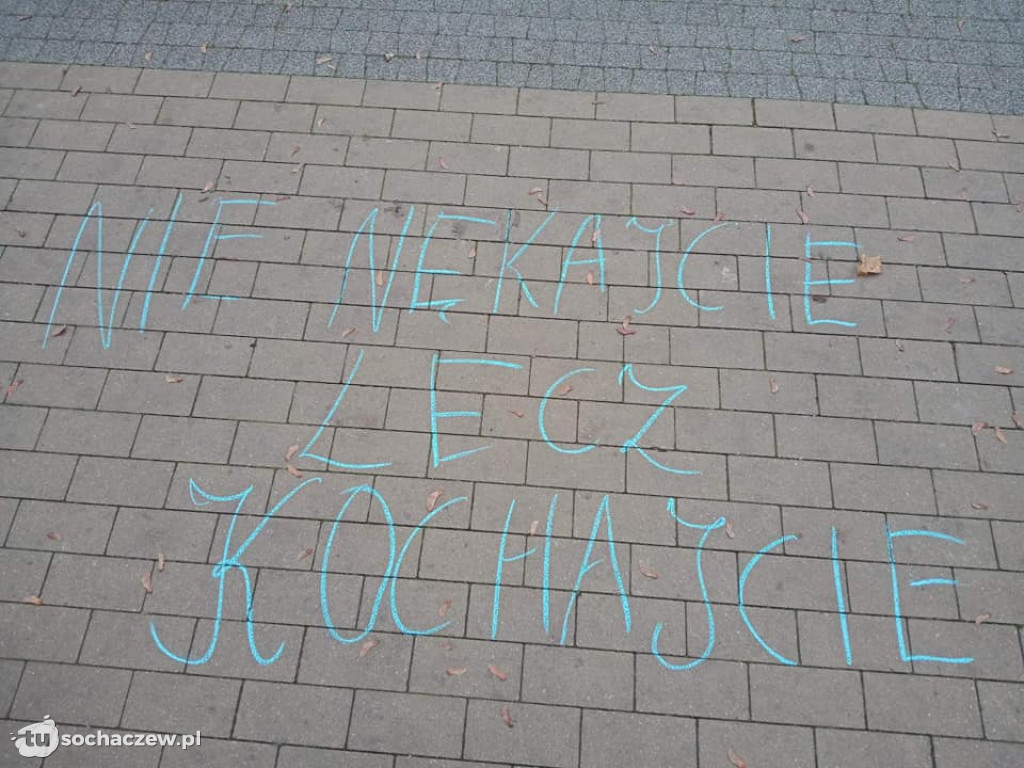 NIE NĘKAJCIE
LECZ
KOCHAJCIE
tu sochaczew.pl